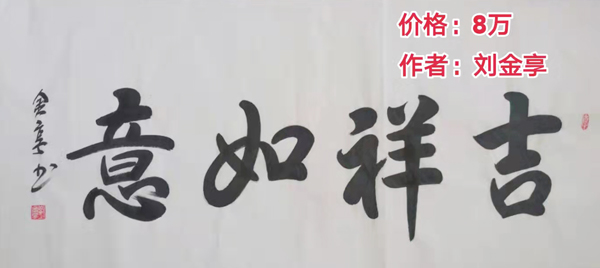 价格：8万
作者：刘金享
吉祥如意
金享书